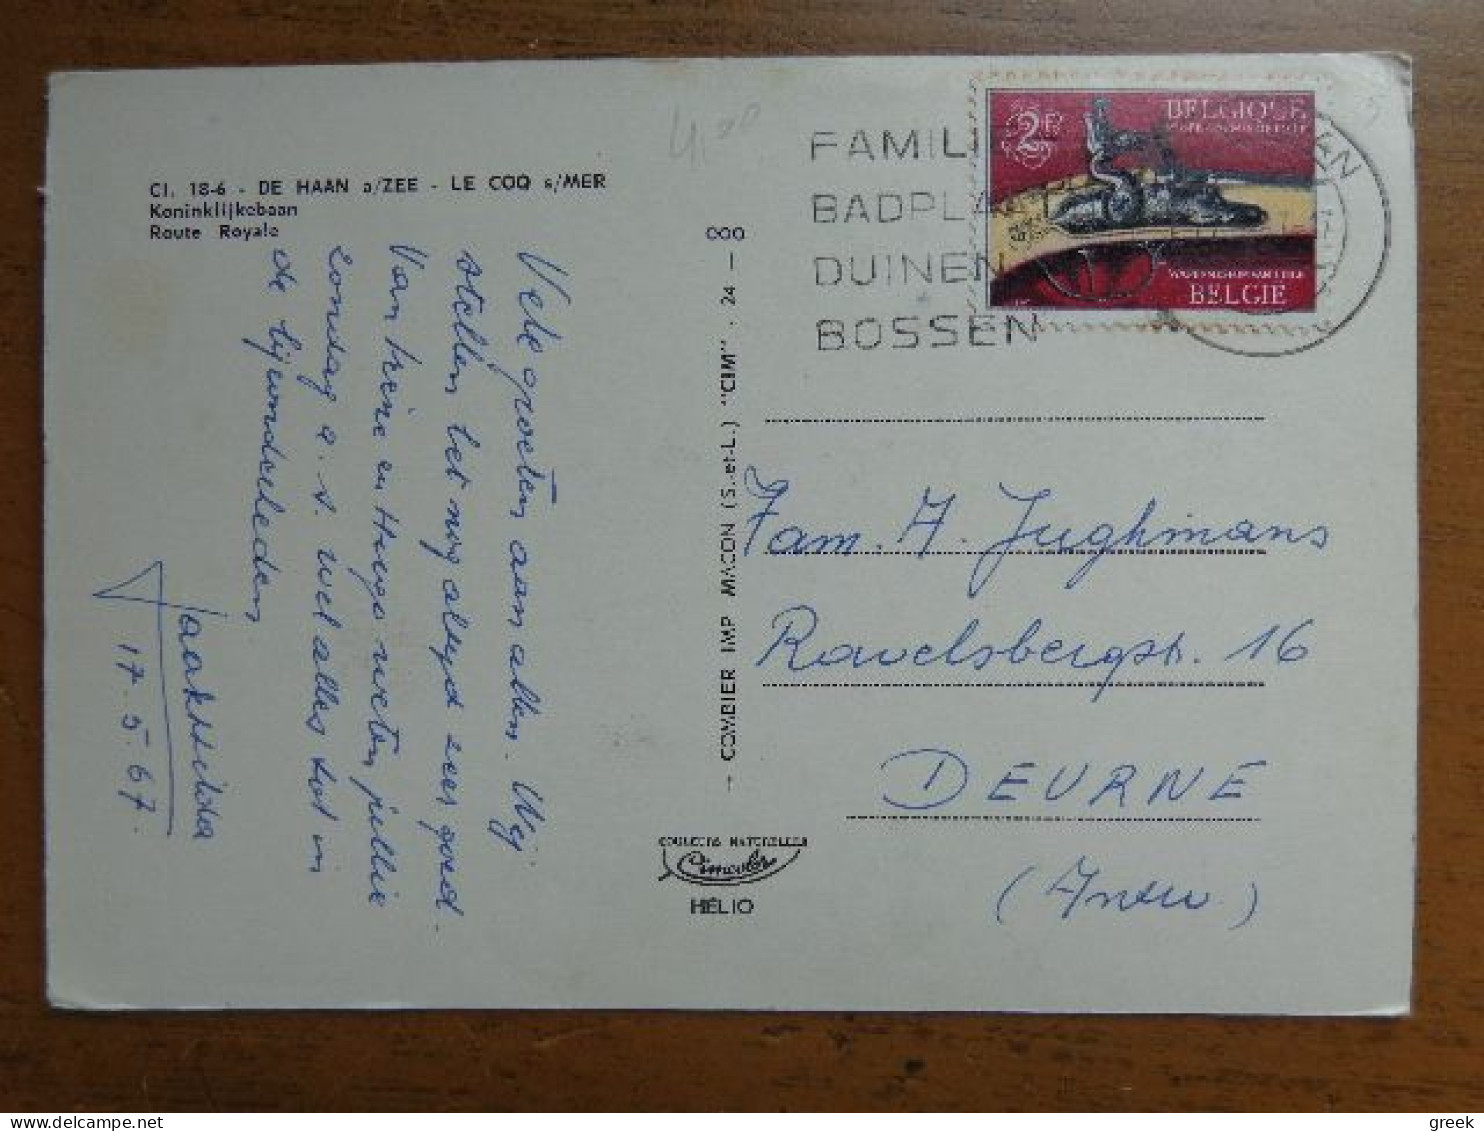 4,00
CI. 18-6 - DE HAAN a/ZEE - LE COQ s/MER
Koninklijkebaan
Route Royale
Vele groeten aan allen. Wij
stellen het nog altyd zeer goed.
Van trene en Hugo weten jullie
zondag a.s. wel alles tot in
de bijzonderheden
Jaak Hilda
17.5.67.
COMBIER IMP MACON (S.-et-L.) "CIM" . 24 - 000
COULEURS NATURELLES
Cimcolor
HÉLIO
FAMILIE
BADPLAATS
DUINEN
BOSSEN
2F
BELGIQUE
BELGIE
Fam. A. Jughmans
Ravelsbergstr. 16
DEURNE
(Antw.)
greek
delcampe.net